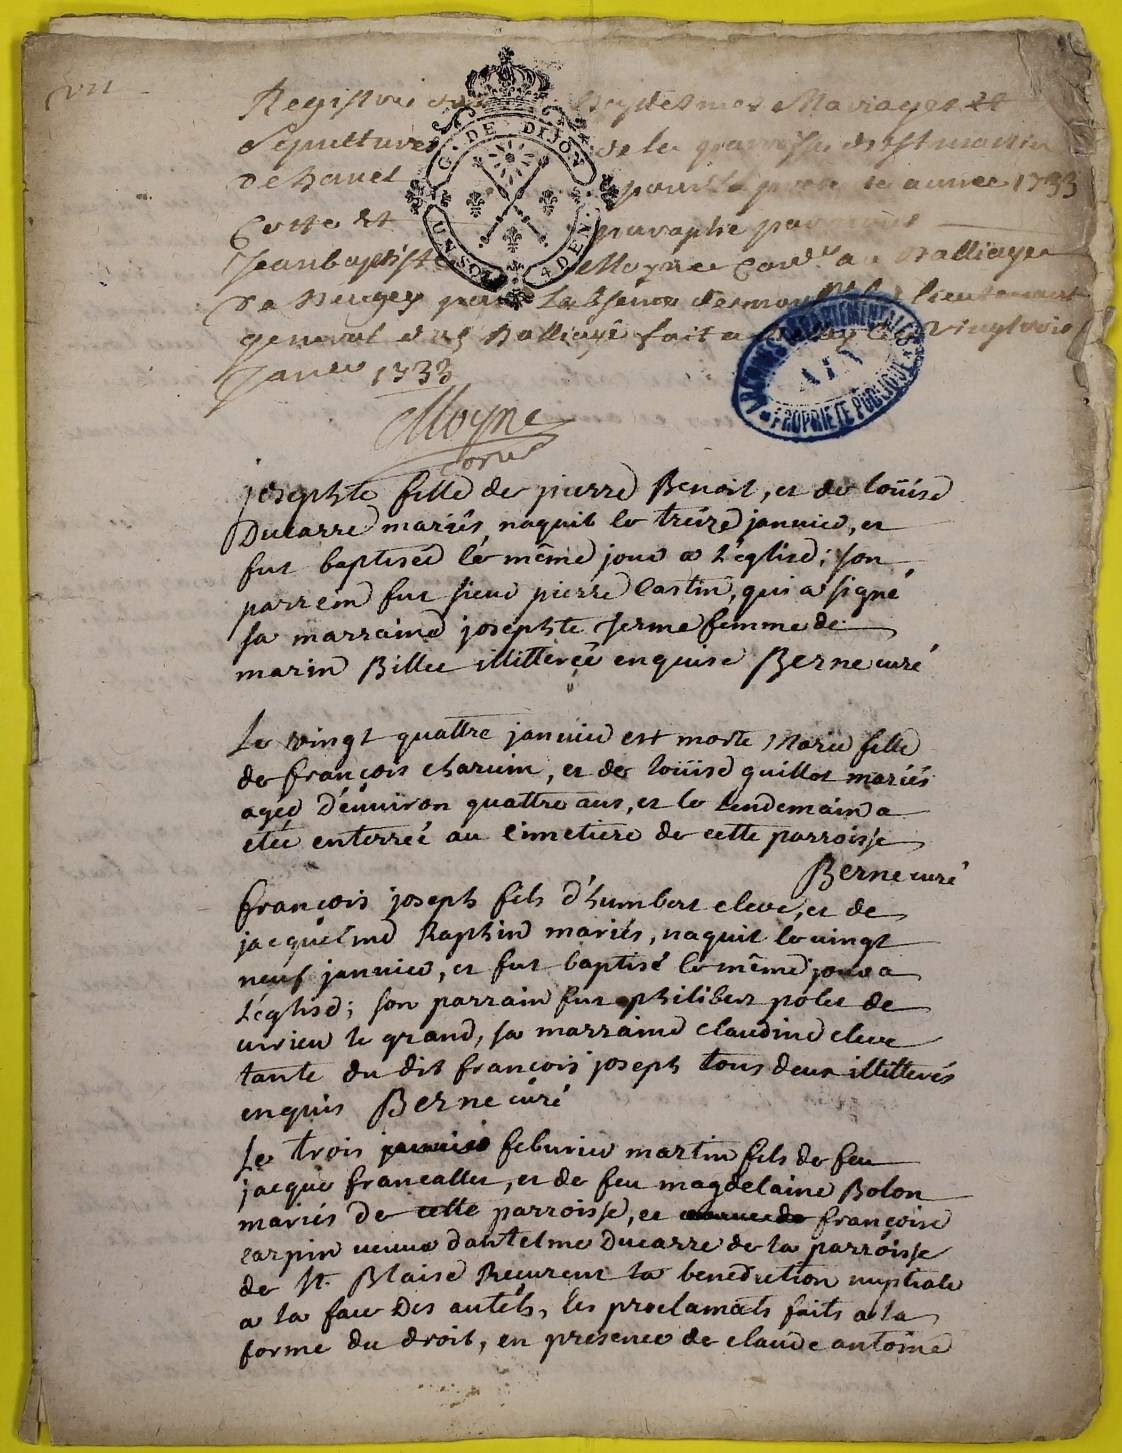 VII
Registre des Baptesmes Mariages et
Sepulture de la parroisse de St martin
de bavet pour la presente année 1733
Cotte et paraphé par nous
Jean baptiste Moyne Con.er au Balliage
de Bugey pour L'absence de monsr le lieutenant
general du dt Balliage fait a Belley le Vingt trois
Janvier 1733
Moyne
G. DE DIJON
UN SOL 4 DEN.
ARCHIVES DEPARTEMENTALES
AIN
PROPRIÉTÉ PUBLIQUE
josephte fille de pierre Benoit, et de loüise
Ducarre mariés, naquit le treize janvier, et
fut baptisée le même jour a L'eglise; son
parrein fut sieur pierre Castin, qui a signé
sa marraine josephte ferme femme de
marin Billet illitterée enquise Berne curé
Le vingt quattre janvier est morte Marie fille
de françois charvin, et de loüise guillot mariés
agée D'environ quattre ans, et le lendemain a
etée enterrée au cimetiere de cette parroisse
Berne curé
françois joseph fils d'humbert cleve, et de
jacqueline Raphin mariés, naquit le vingt
neuf janvier, et fut baptisé le même jour a
L'eglise; son parrain fut philibert polet de
virieu le grand, sa marraine claudine cleve
tante du dit françois joseph tous deux illitterés
enquis Berne curé
Le trois janvier febvrier martin fils de feu
jacque francallet, et de feu magdelaine Bolon
mariés de cette parroisse, et françoise
carpin veuve d'antelme Ducarre de la parroisse
de St. Blaise Reçurent la benediction nuptiale
a la face Des autels, les proclamats faits a la
forme du droit, en presence de claude antoine